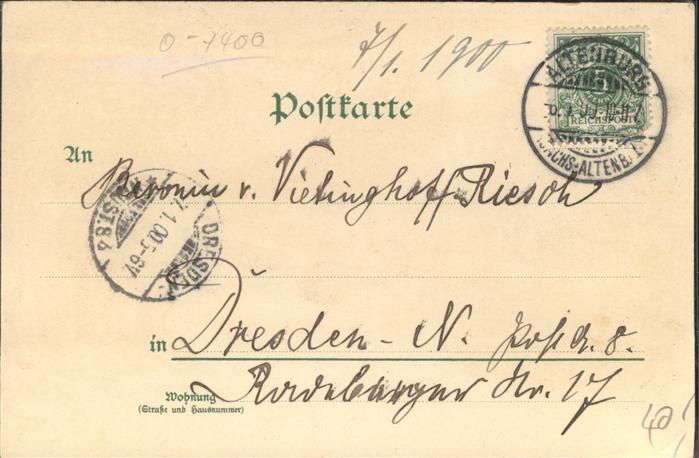 0-7400
7/1. 1900
ALTENBURG
REICHSPOST
SACHS.-ALTENB.
Postkarte
An
Baronin v. Vietinghoff-Riesch
7.1.00. 5-6V.
DRESDEN
in Dresden - N. Posta. 8.
Radeberger Str. 17
Wohnung
(Straße und Hausnummer)
40